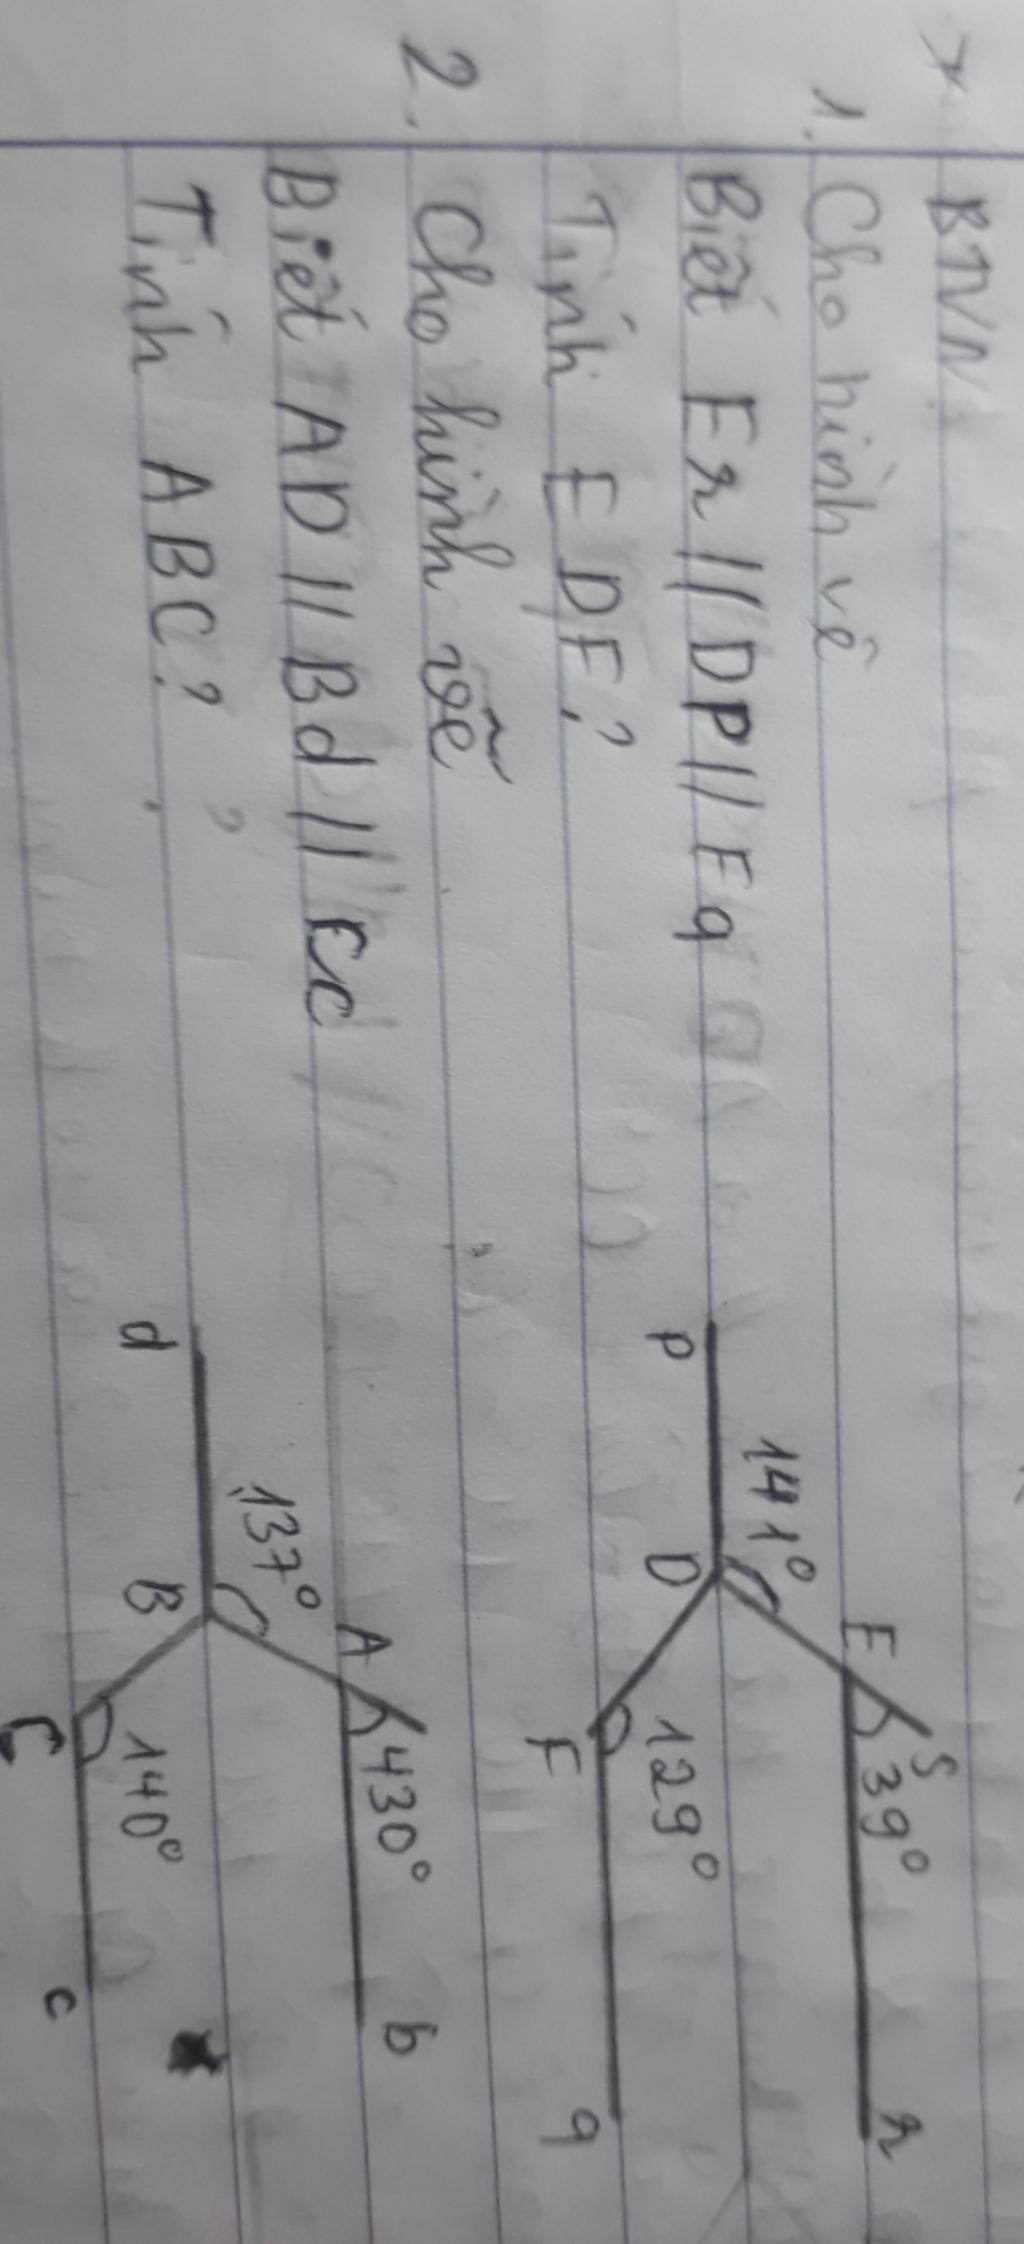 * BTVN
1. Cho hình vẽ
Biết Er // DP // Fq
Tính EDF?
2. Cho hình vẽ
Biết AD // Bd // Cc
Tính ABC?
S
E 39° r
141°
p D 129°
F q
A 430° b
137°
d B 140°
C c